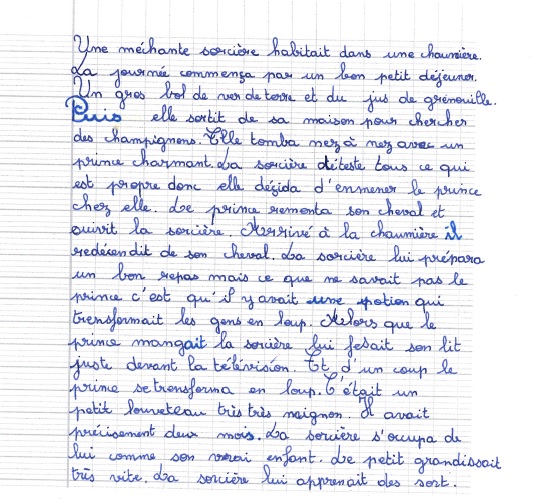 Une méchante sorcière habitait dans une chaumière.
La journée commença par un bon petit déjeuner.
Un gros bol de ver de terre et du jus de grenouille.
Puis elle sortit de sa maison pour chercher
des champignons. Elle tomba nez à nez avec un
prince charmant. La sorcière déteste tous ce qui
est propre donc elle dégida d'enmener le prince
chez elle. Le prince remonta son cheval et
suivit la sorcière. Arrivé à la chaumière il
redécendit de son cheval. La sorcière lui prépara
un bon repas mais ce que ne savait pas le
prince c'est qu'il y avait une potion qui
trensformait les gens en loup. Alors que le
prince mangait la sorcière lui fesait son lit
juste devant la télévision. Et d'un coup le
prince se transforma en loup. C'était un
petit louveteau très très mignon. Il avait
précisement deux mois. La sorcière s'occupa de
lui comme son vrai enfant. Le petit grandissait
très vite. La sorcière lui apprenait des sort.